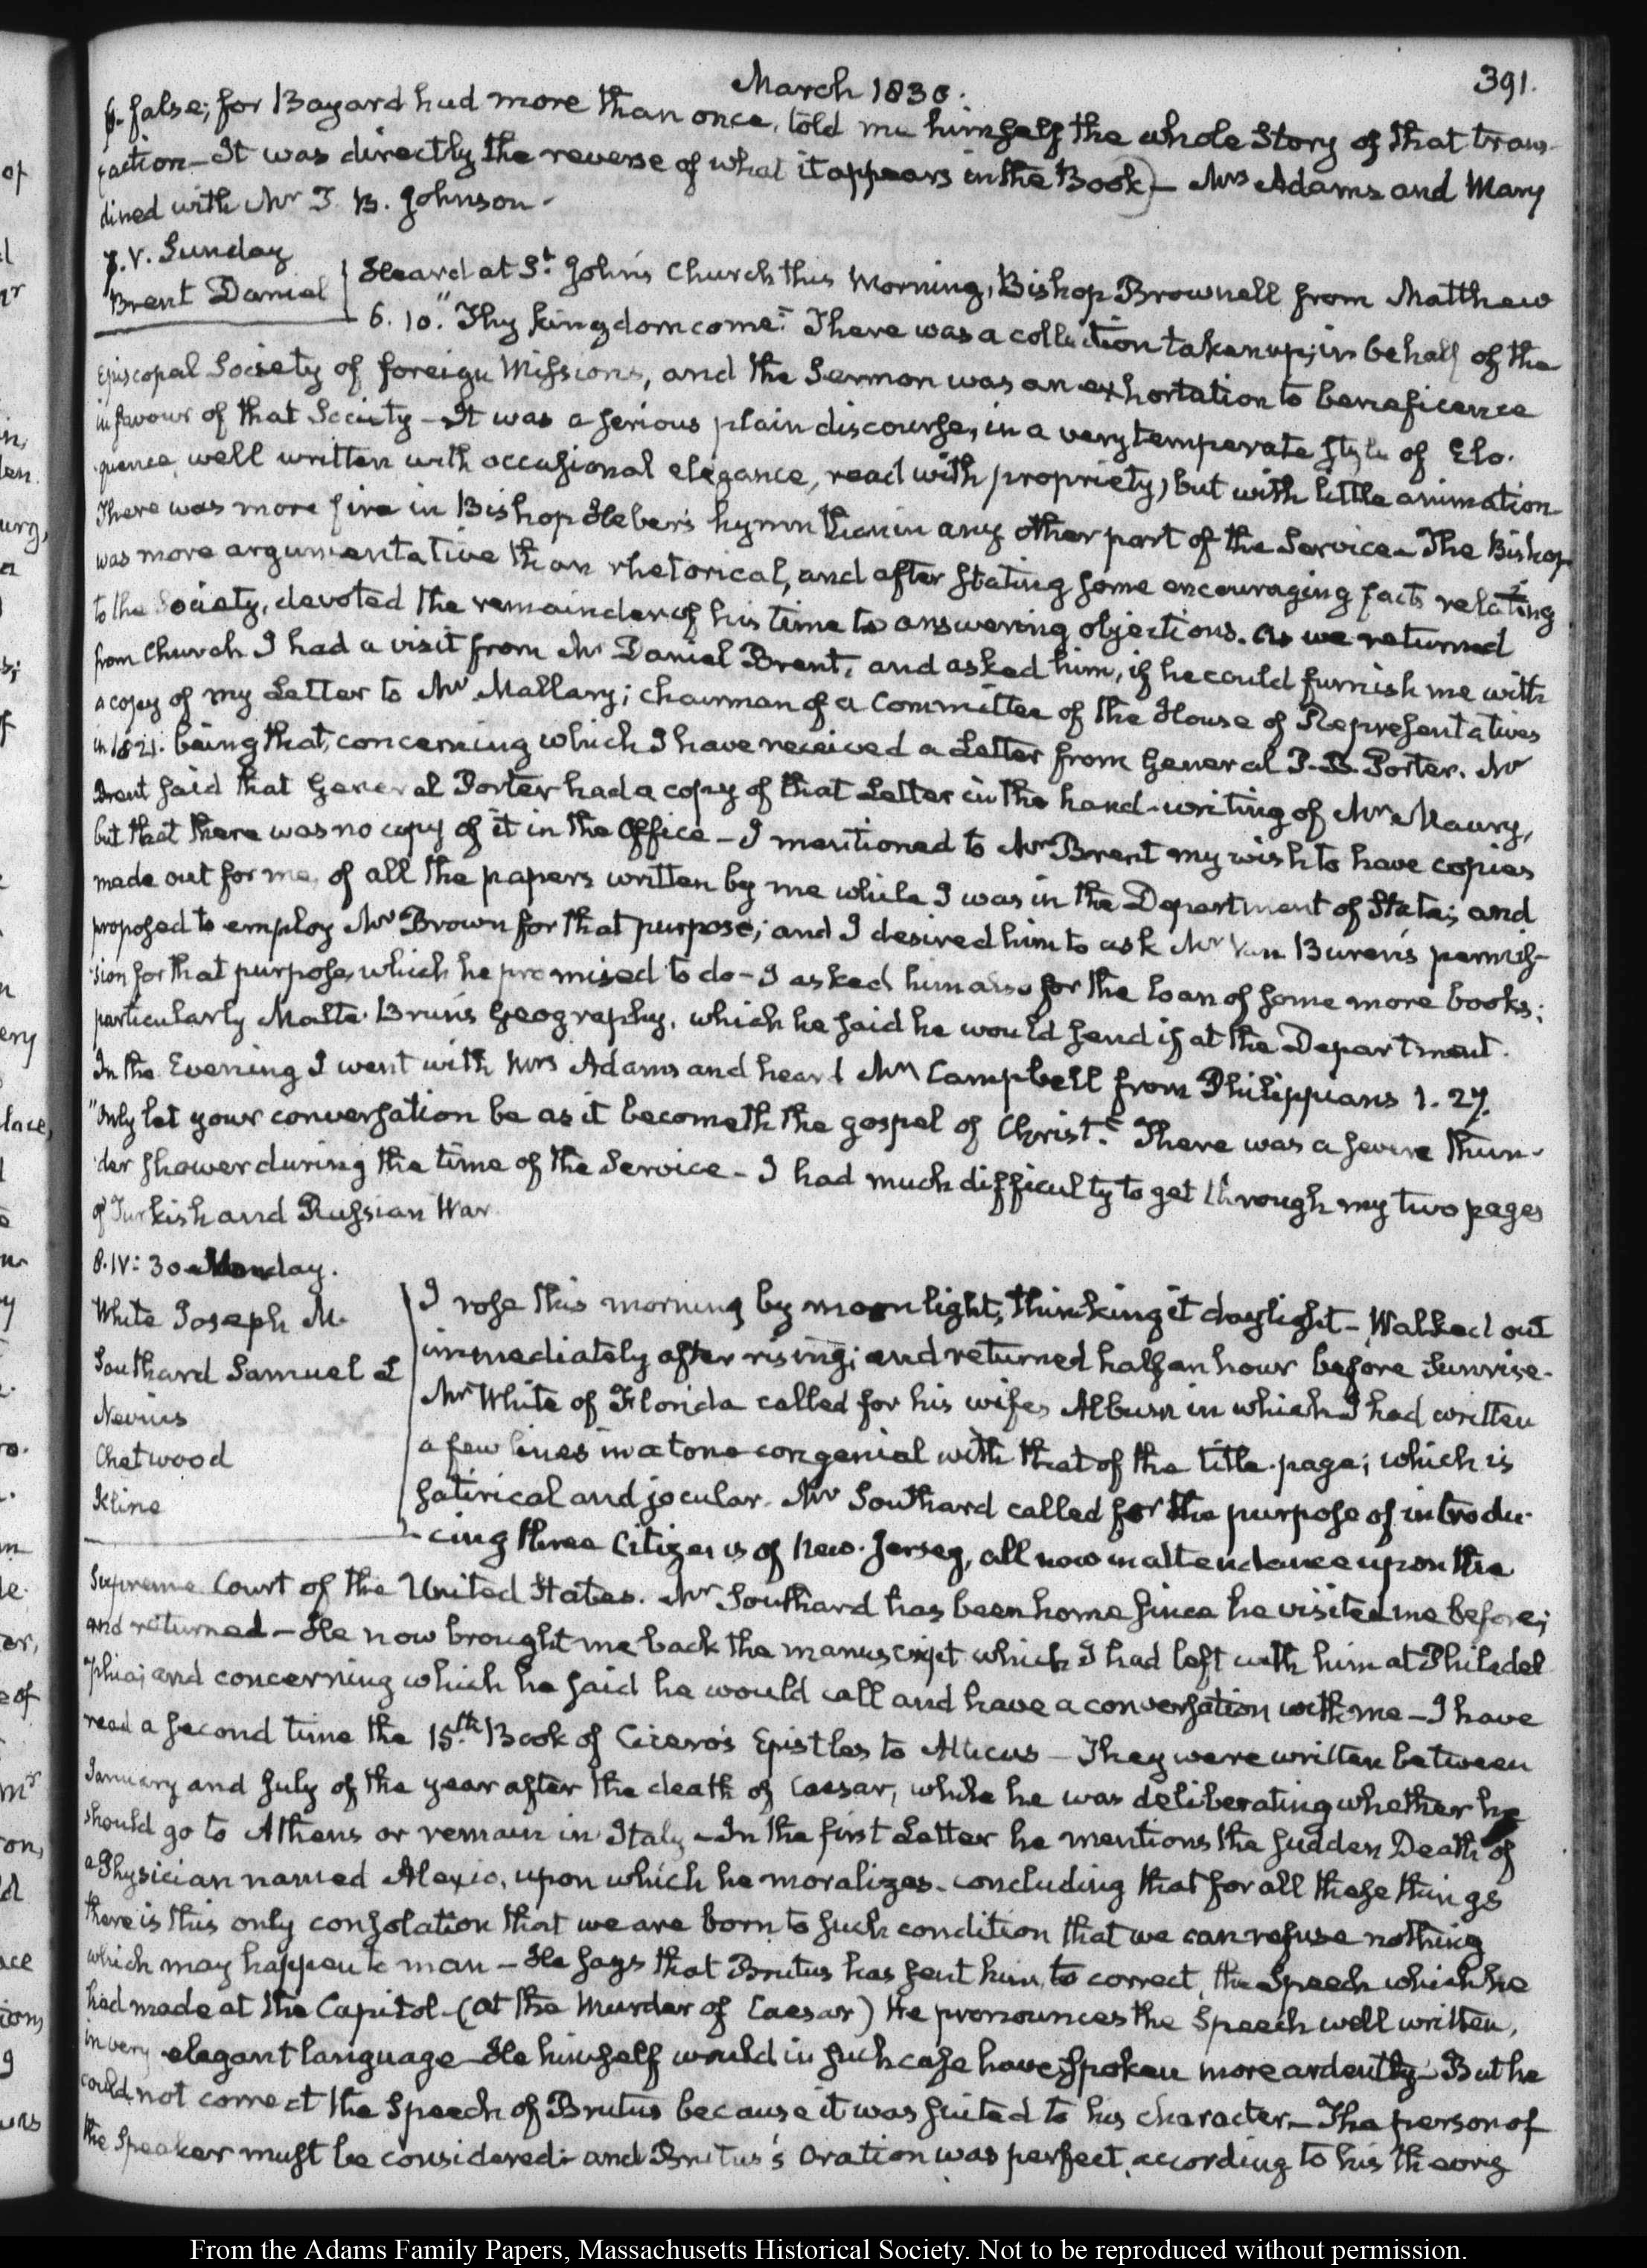 March 1830.
391.
6. false; for Bayard had more than once, told me himself the whole Story of that trans-
action. It was directly the reverse of what it appears in the Book) — Mrs Adams and Mary
dined with Mr T. B. Johnson.
7. V. Sunday
Brent Daniel
Heard at St. John's Church this Morning, Bishop Brownell from Matthew
6. 10. "Thy kingdom come." There was a collection taken up; in behalf of the
Episcopal Society of foreign Missions, and the Sermon was an exhortation to beneficence
in favour of that Society — It was a serious plain discourse, in a very temperate style of Elo-
quence, well written with occasional elegance, read with propriety, but with little animation.
There was more fire in Bishop Heber's hymn than in any other part of the Service. The Bishop
was more argumentative than rhetorical, and after stating some encouraging facts relating
to the Society, devoted the remainder of his time to answering objections. As we returned
from Church I had a visit from Mr Daniel Brent, and asked him, if he could furnish me with
a copy of my Letter to Mr Mallary; chairman of a Committee of the House of Representatives
in 1821. being that, concerning which I have received a Letter from General P. B. Porter. Mr
Brent said that General Porter had a copy of that Letter in the hand-writing of Mr Maury,
but that there was no copy of it in the Office — I mentioned to Mr Brent my wish to have copies
made out for me, of all the papers written by me while I was in the Department of State; and
proposed to employ Mr Brown for that purpose; and I desired him to ask Mr Van Buren's permis-
sion for that purpose, which he promised to do — I asked him also for the loan of some more books;
particularly Malte-Brun's Geography, which he said he would send if at the Department.
In the Evening I went with Mrs Adams and heard Mr Campbell from Philippians 1. 27.
"Only let your conversation be as it becometh the gospel of Christ." There was a severe thun-
der shower during the time of the Service — I had much difficulty to get through my two pages
of Turkish and Russian War.
8. IV: 30 Monday.
White Joseph M.
Southard Samuel L
Nevius
Chetwood
Kline
I rose this morning by moonlight, thinking it daylight — Walked out
immediately after rising; and returned half an hour before Sunrise.
Mr White of Florida called for his wife's Album in which I had written
a few lines in a tone congenial with that of the title-page; which is
satirical and jocular. Mr Southard called for the purpose of introdu-
cing three Citizens of New-Jersey, all now in attendance upon the
Supreme Court of the United States. Mr Southard has been home since he visited me before;
and returned — He now brought me back the manuscript which I had left with him at Philadel
phia; and concerning which he said he would call and have a conversation with me — I have
read a second time the 15th. Book of Cicero's Epistles to Atticus — They were written between
January and July of the year after the death of Caesar, while he was deliberating whether he
should go to Athens or remain in Italy — In the first Letter he mentions the sudden Death of
a Physician named Alexio, upon which he moralizes, concluding that for all these things
there is this only consolation that we are born to such condition that we can refuse nothing
which may happen to man — He says that Brutus has sent him, to correct, the Speech which he
had made at the Capitol — (at the Murder of Caesar) He pronounces the Speech well written,
in very elegant language — He himself would in such case have spoken more ardently — But he
could not correct the Speech of Brutus because it was suited to his character — The person of
the Speaker must be considered; and Brutus's Oration was perfect, according to his theory
From the Adams Family Papers, Massachusetts Historical Society. Not to be reproduced without permission.